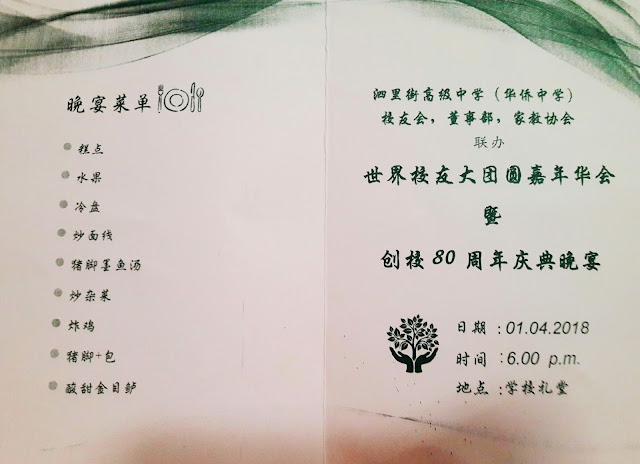 晚宴菜单
糕点
水果
冷盘
炒面线
猪脚墨鱼汤
炒杂菜
炸鸡
猪脚+包
酸甜金目鲈
泗里街高级中学（华侨中学）
校友会，董事部，家教协会
联办
世界校友大团圆嘉年华会
暨
创校80周年庆典晚宴
日期：01.04.2018
时间：6.00 p.m.
地点：学校礼堂